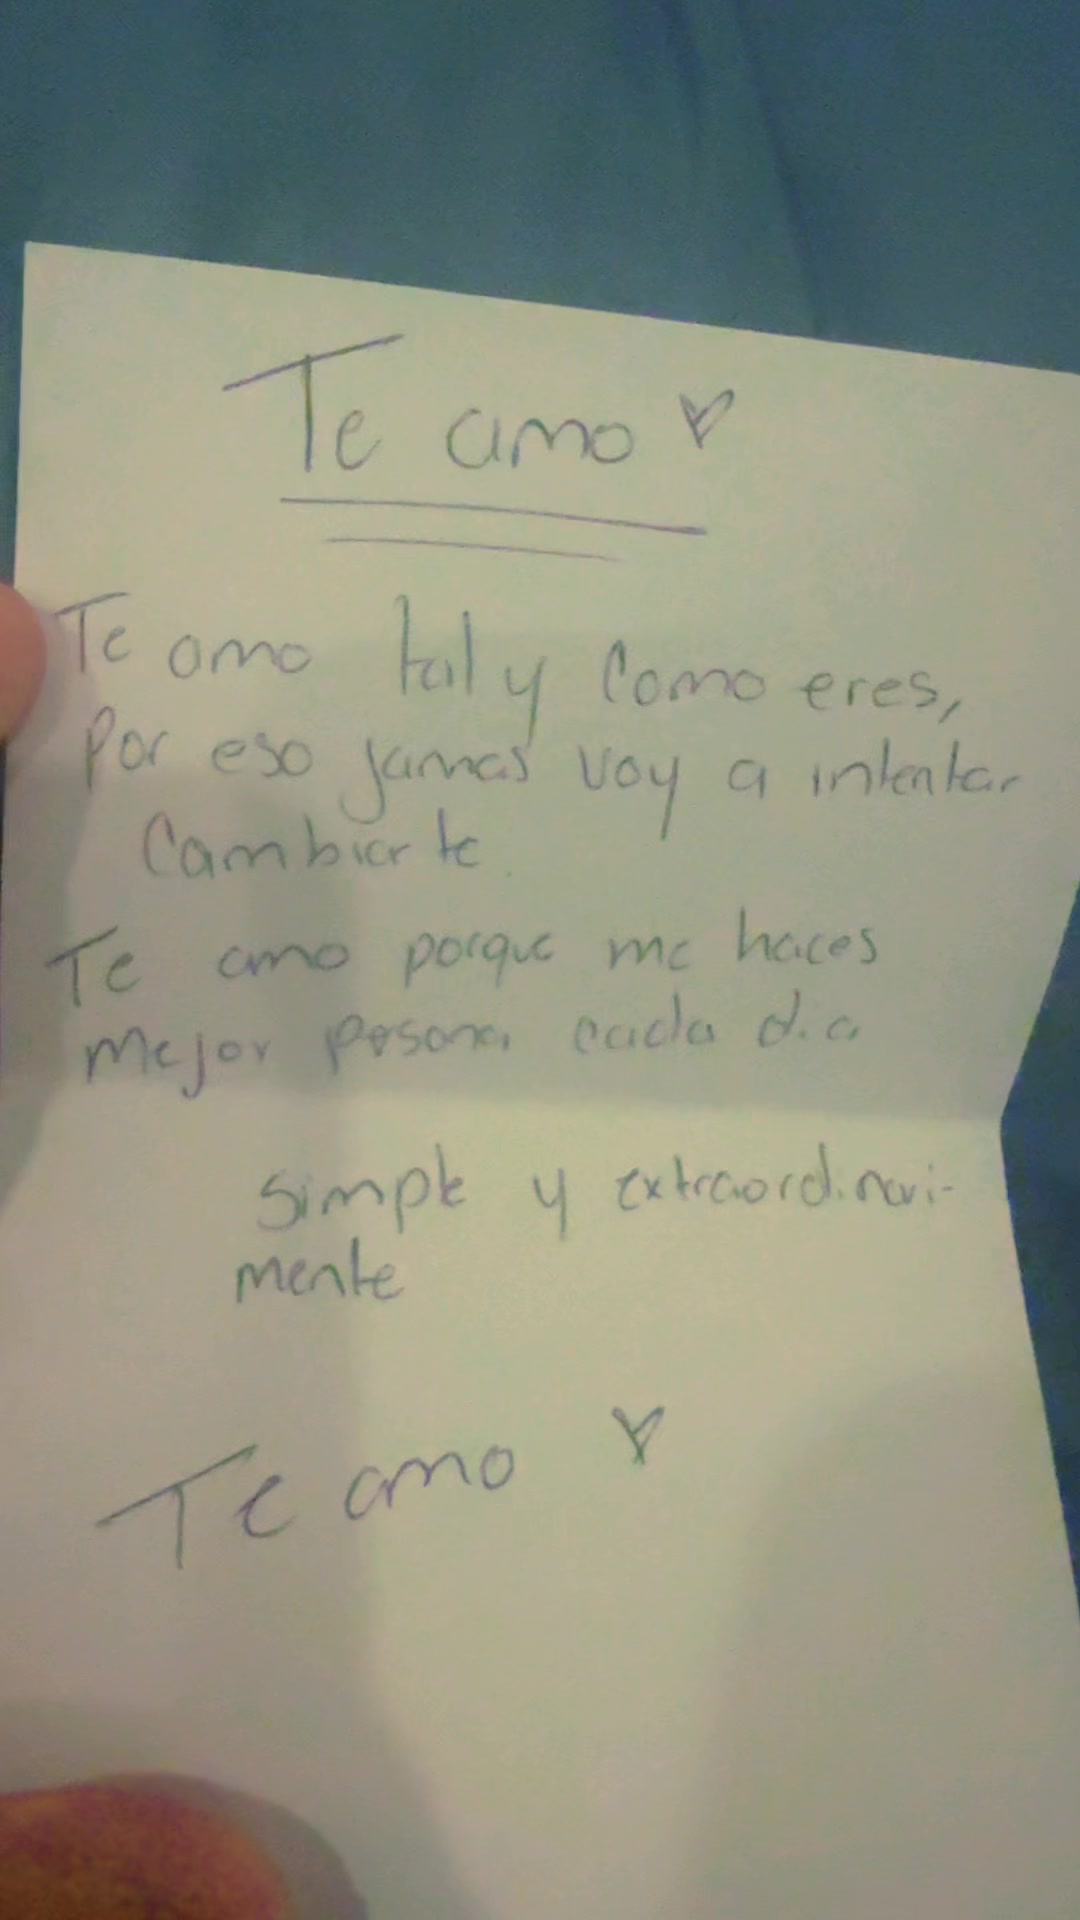 Te amo ♥
Te amo tal y como eres,
Por eso jamas voy a intentar
Cambiarte.
Te amo porque me haces
Mejor pesona cada dia
simple y extraordinari-
mente
Te amo ♥